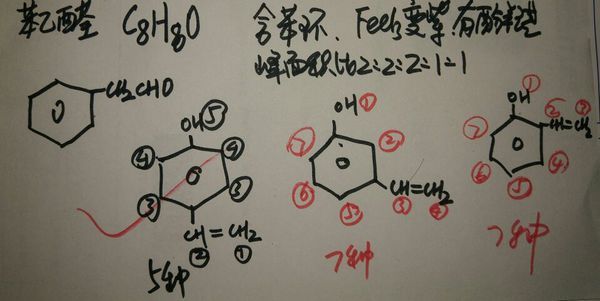 苯乙醛 C8H8O 含苯环、FeCl3变紫,有酚羟基
峰面积比2:2:2:1:1
CH2CHO
OH⑤
④ ④
③ ③
CH=CH2
② ①
5种
OH①
⑦ ②
⑥ ⑤
CH=CH2
③ ④
7种
①
OH ② ③
CH=CH2
⑦ ④
⑥ ⑤
7种